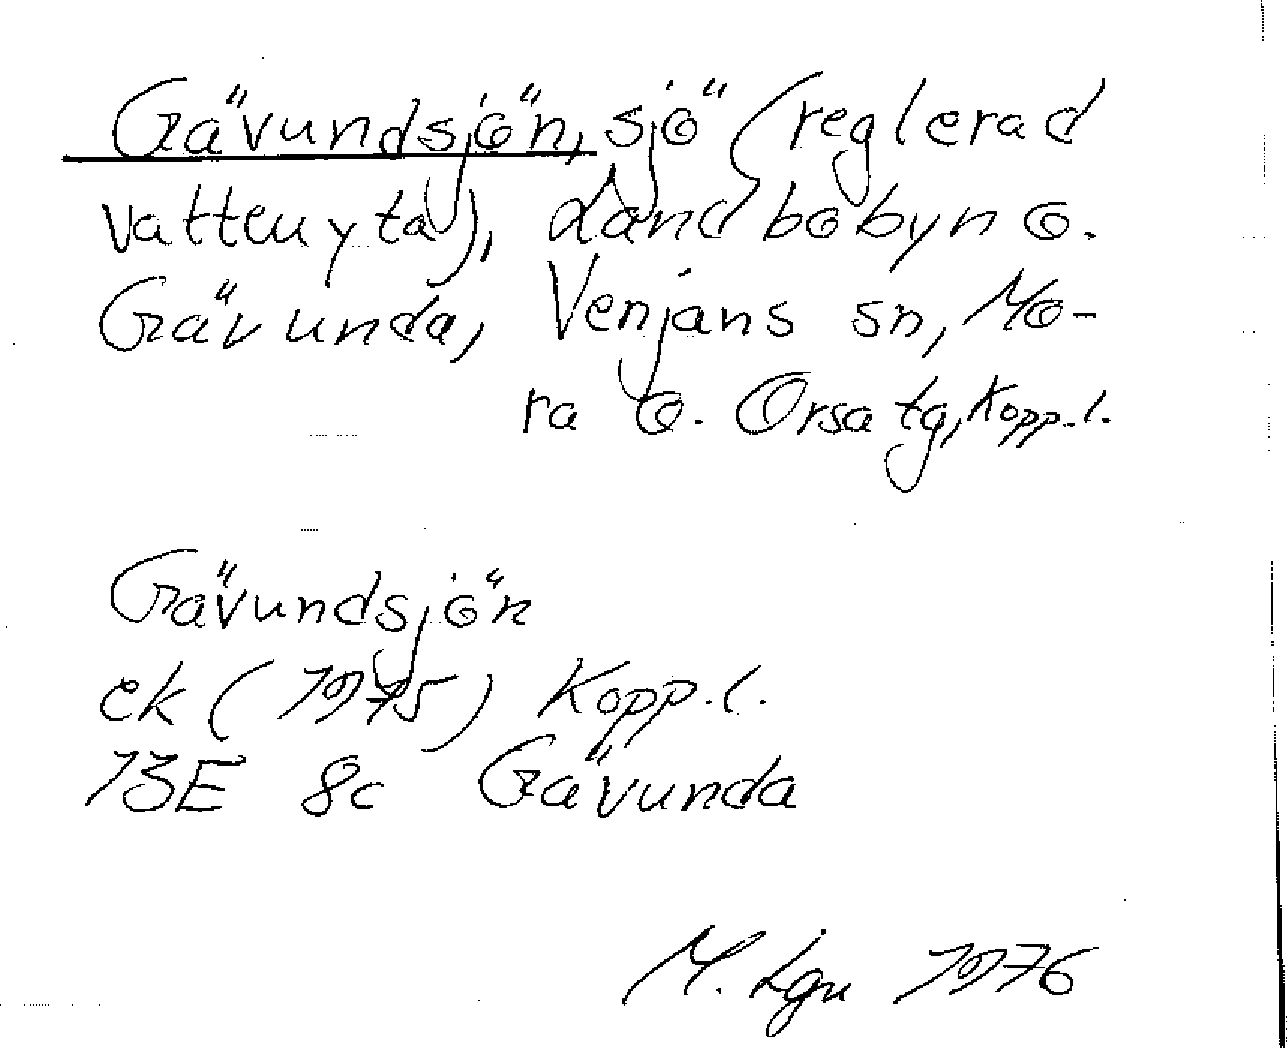 Gävundsjön, sjö (reglerad
vattenyta), Landbobyn o.
Gävunda, Venjans sn, Mo-
ra o. Orsa tg, Kopp. l.
Gävundsjön
ek (1975) Kopp. l.
13E 8c Gävunda
M. Lgn 1976